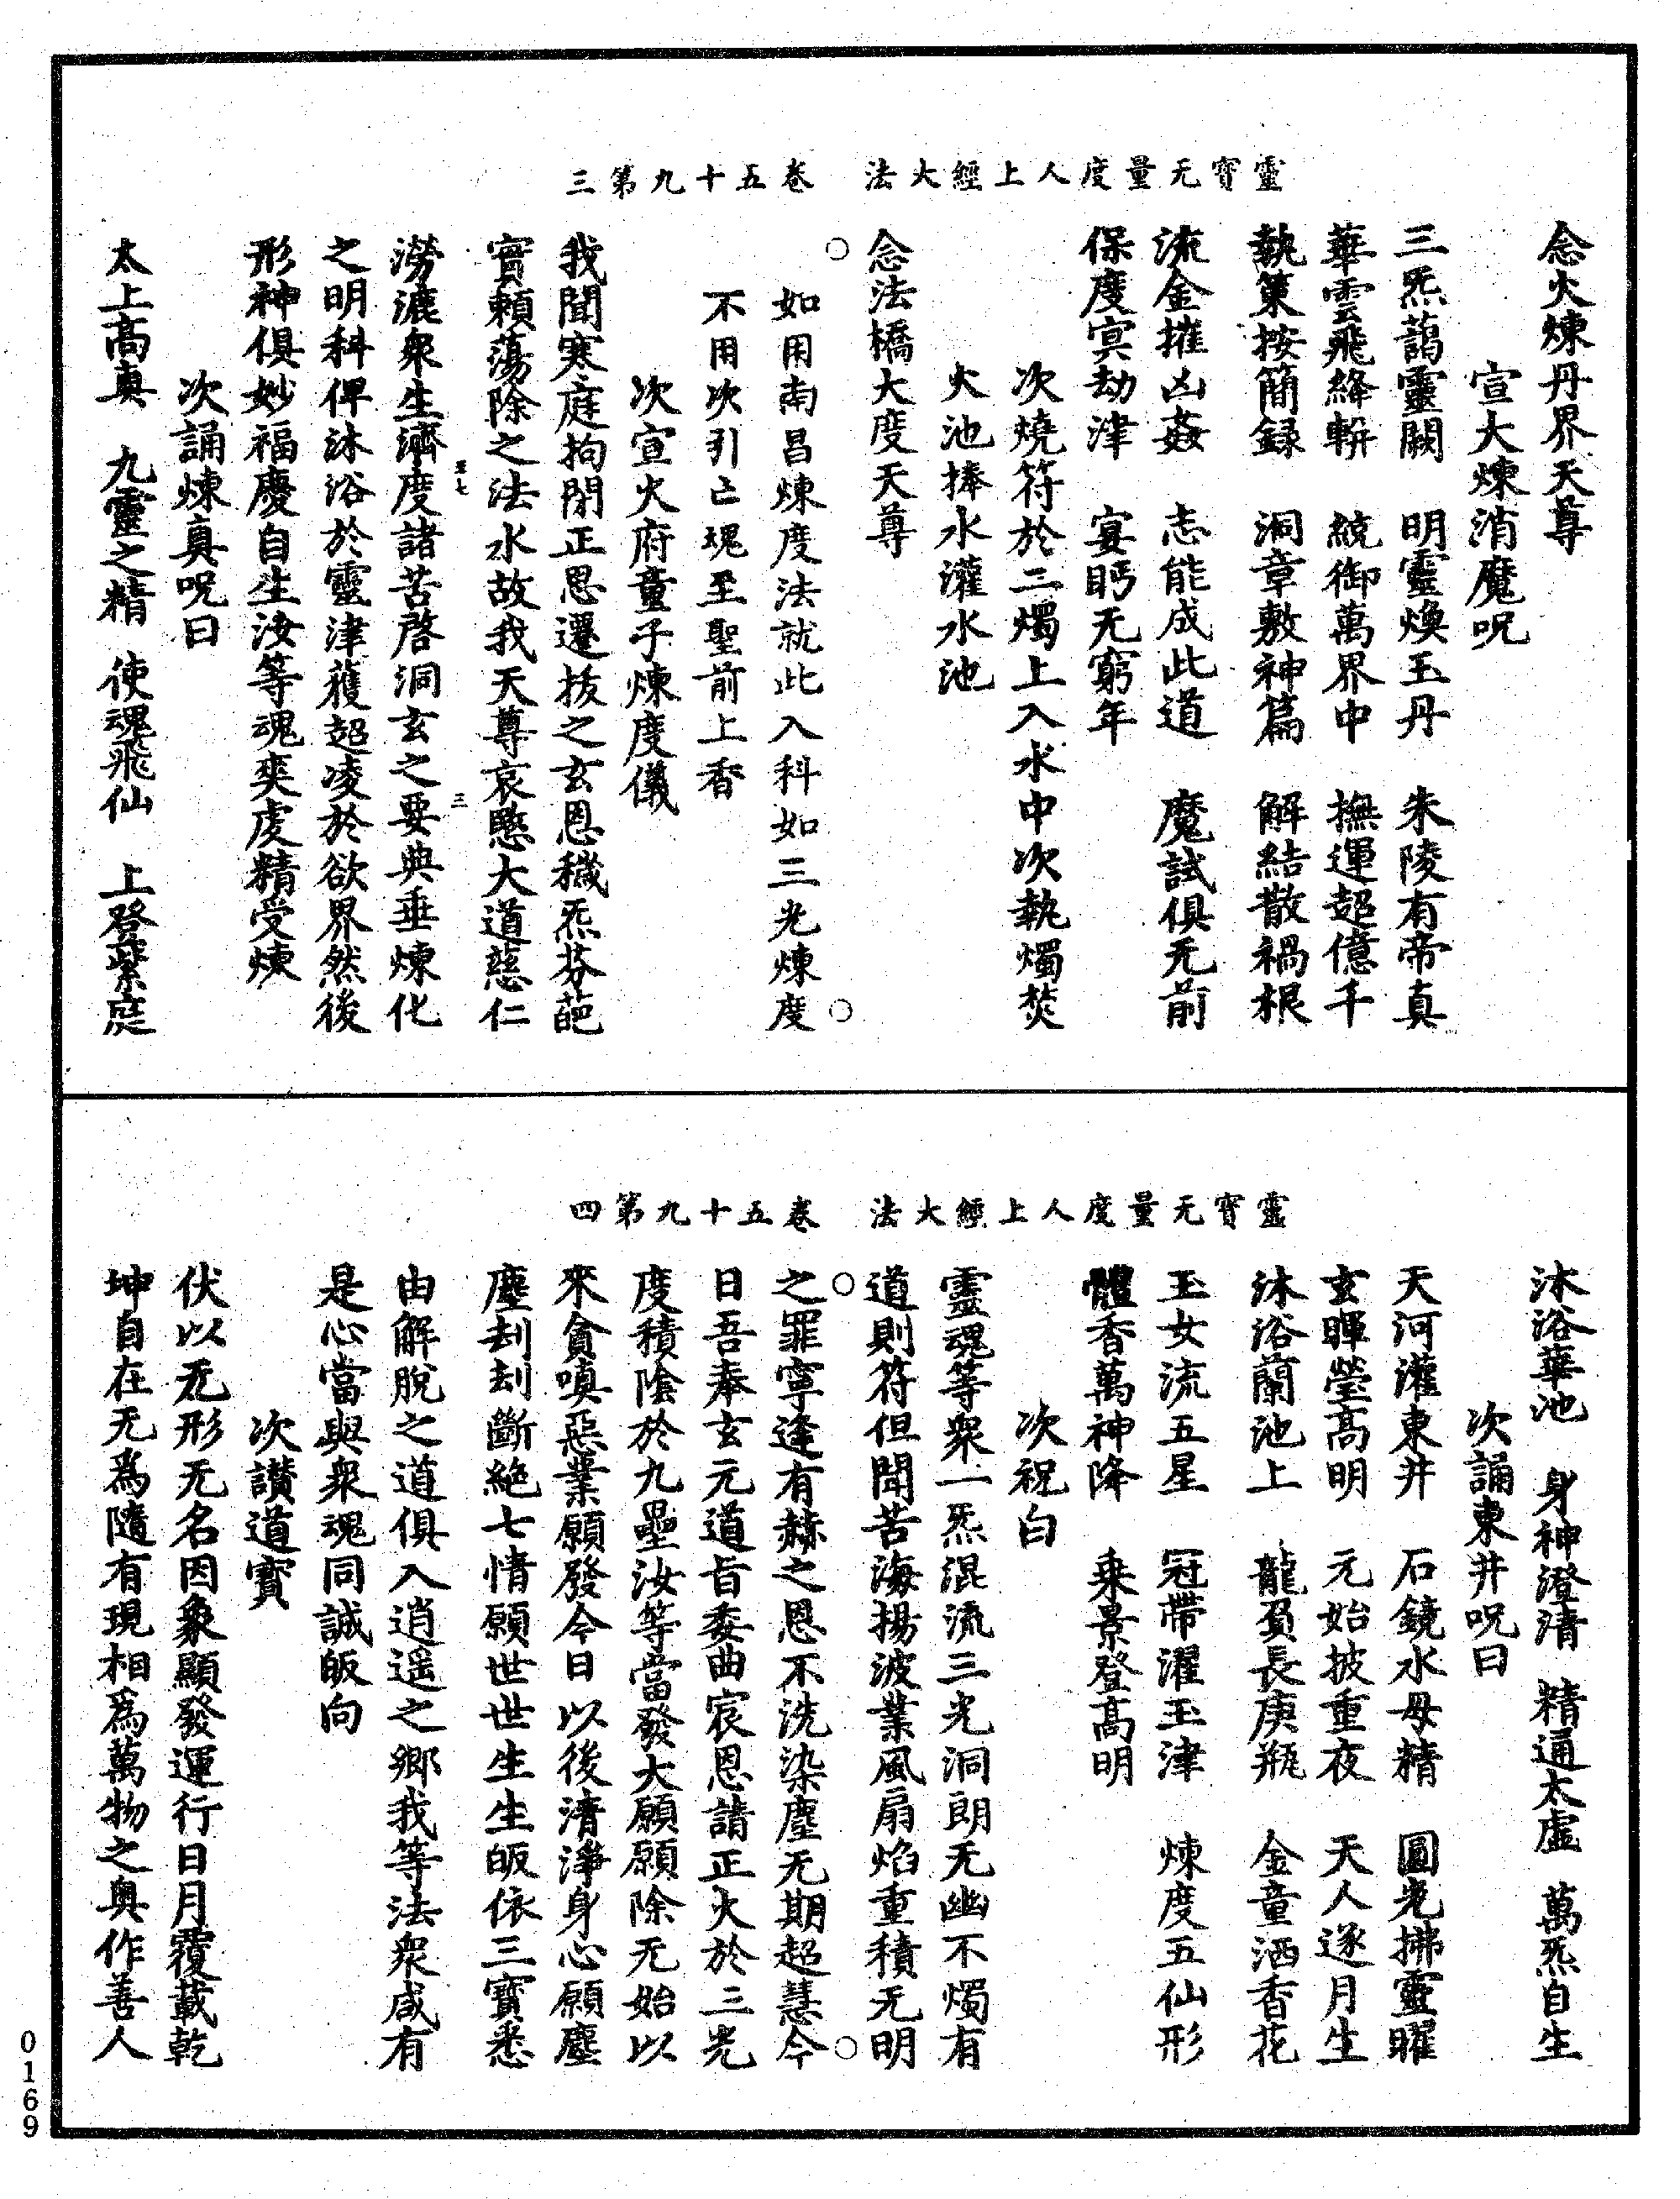 靈寶无量度人上經大法　卷五十九第三
念火煉丹界天尊
宣大煉消魔呪
三炁藹靈闕　明靈煥玉丹　朱陵有帝真
華雲飛絳軿　統御萬界中　撫運超億千
執策按簡録　洞章敷神篇　解結散禍根
流金摧凶姦　志能成此道　魔試俱无前
保度冥劫津　宴眄无窮年
次燒符於二燭上入水中次執燭焚
火池捧水灌水池
念法橋大度天尊
如用南昌煉度法就此入科如三光煉度
不用次引亡魂至聖前上香
次宣火府童子煉度儀
我聞寒庭拘閉正思遷拔之玄恩穢炁芬葩
實賴蕩除之法水故我天尊哀愍大道慈仁
澇漉衆生濟度諸苦啓洞玄之要典垂煉化
之明科俾沐浴於靈津䕶超凌於欲界然後
形神俱妙福慶自生汝等魂爽虔精受煉
次誦煉真呪曰
太上高真　九靈之精　使魂飛仙　上登紫庭
靈寶无量度人上經大法　卷五十九第四
沐浴華池　身神澄清　精通太虛　萬炁自生
次誦東井呪曰
天河灌東井　石鏡水母精　圓光拂靈曜
玄暉瑩高明　元始披重夜　天人遂月生
沐浴蘭池上　龍負長庚瓶　金童洒香花
玉女流五星　冠帶濯玉津　煉度五仙形
體香萬神降　乗景登高明
次祝白
靈魂等衆一炁混流三光洞朗无幽不燭有
道則符但聞苦海揚波業風扇焰重積无明
之罪寧逢有赫之恩不洗染塵无期超慧今
日吾奉玄元道旨委曲宸恩請正火於三光
度積陰於九壘汝等當發大願願除无始以
來貪嗔惡業願發今日以後清淨身心願塵
塵刦刦斷絶七情願世世生生皈依三寶悉
由解脫之道俱入逍遥之鄉我等法衆咸有
是心當與衆魂同誠皈向
次讃道寶
伏以无形无名因象顯發運行日月覆載乾
坤自在无爲隨有現相爲萬物之奥作善人
0169